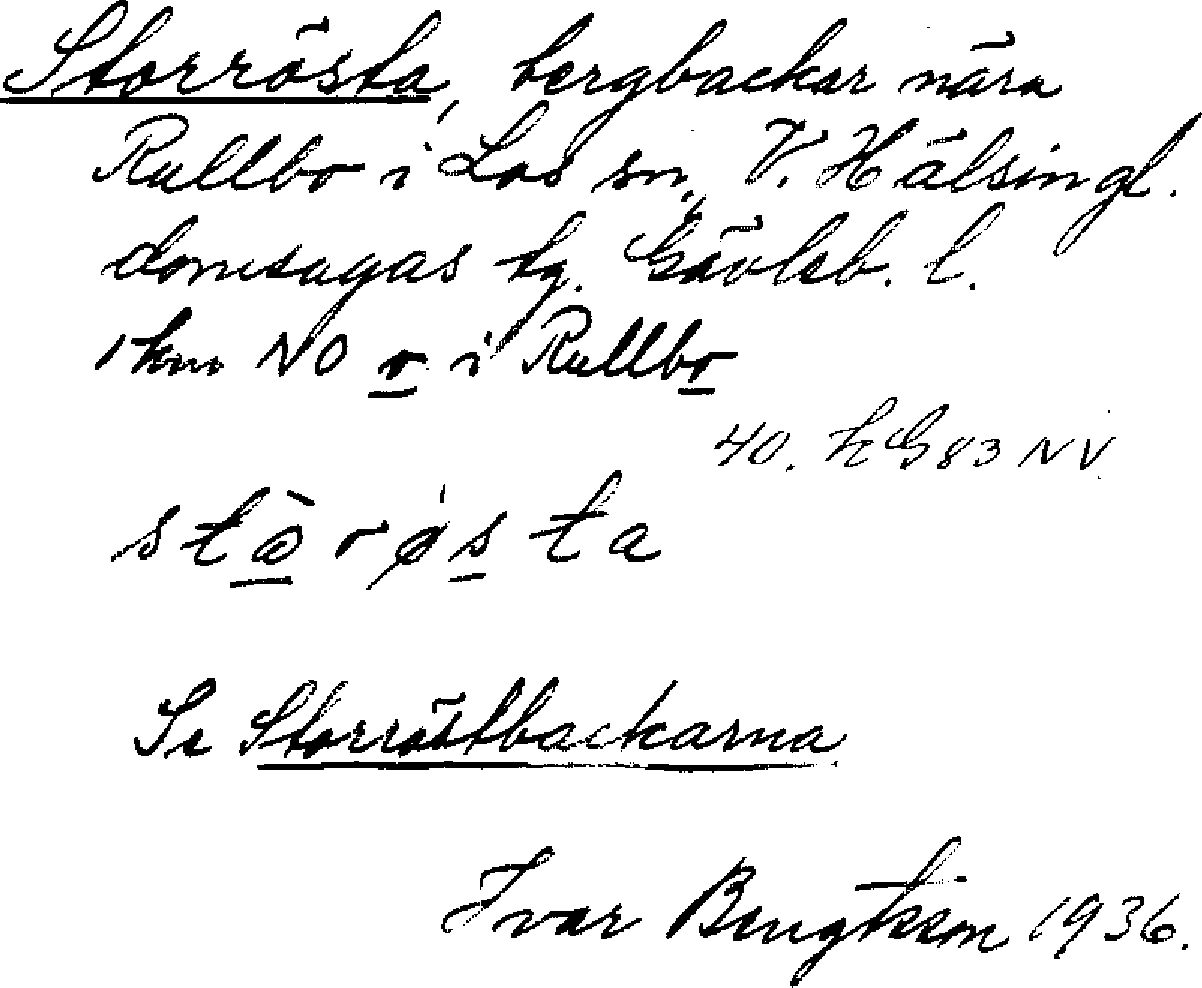 Storrösta, bergbackar nära
Rullbo i Los sn, V. Hälsingl.
domsagas tg. Gävleb. l.
1 km NO o i Rullbo
40. HG83 NV.
stòrǿsta
Se Storröstbackarna
Ivar Bengtsson 1936.